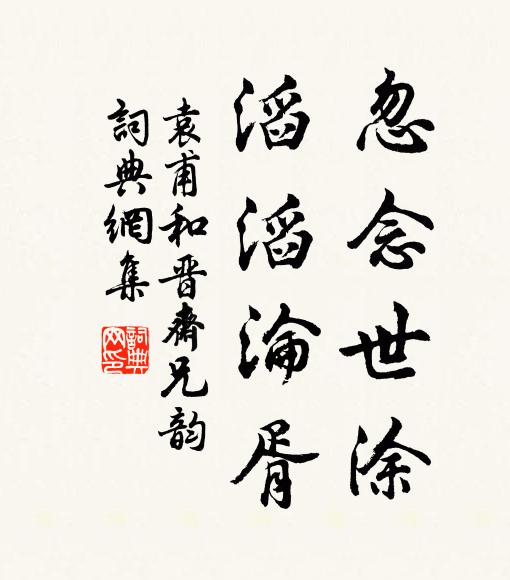 忽念世涂
滔滔淪胥
袁甫和晋齋兄韵
詞典網集
詞典網印